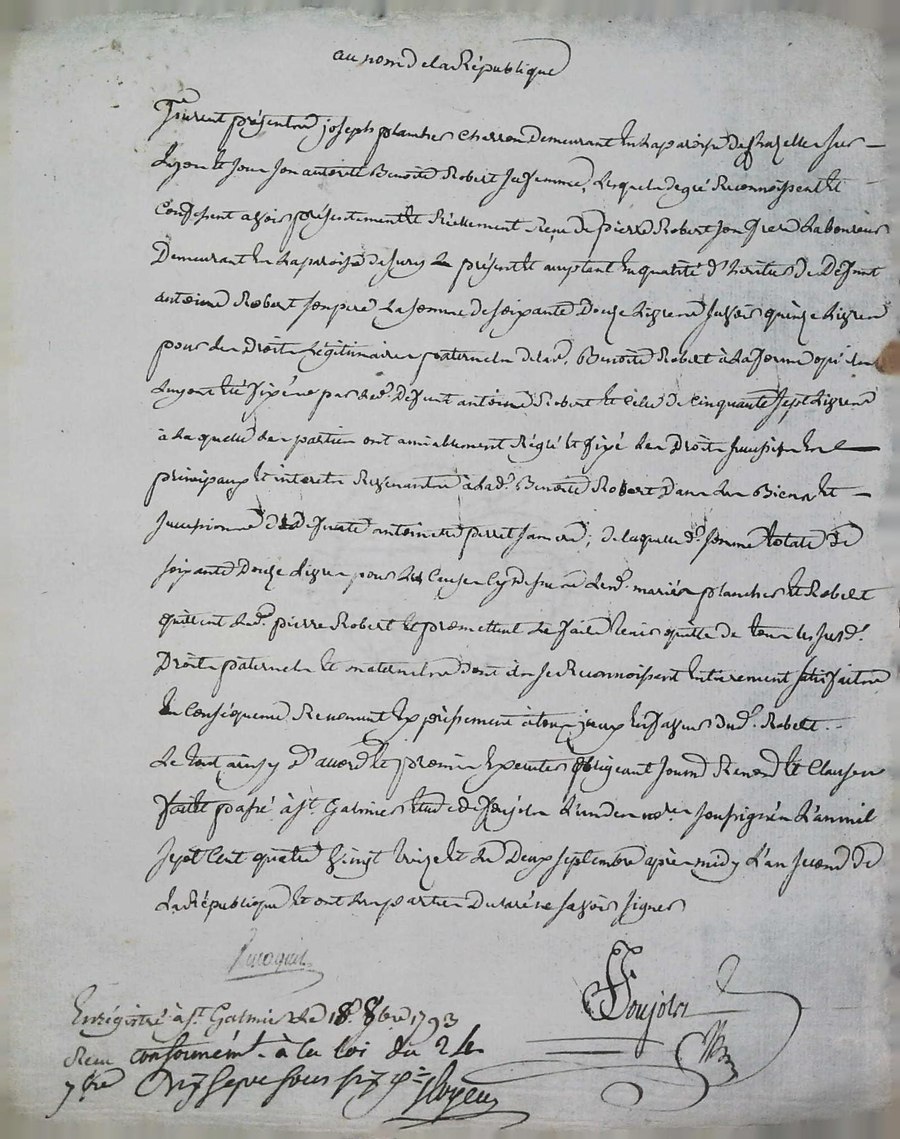 au nom de la République
Furent présents joseph plancher charron Demeurant En la paroisse de Chazelles sur
Lyon et sous son autorité Benoite Robert sa femme, Lesquels de gré Reconnoissent et
Confessent avoir présentement et Réellement Reçu de pierre Robert son frere Laboureur
Demeurant En la paroisse de present et acceptant En qualité d'heritier de Défunt
antoine Robert son pere La somme de soixante Douze Livres sçavoir quinze Livres
pour les Droits Légitimaires paternels de lad. Benoite Robert à la forme qu'ils
Luy ont été fixés par led. Défunt antoine Robert et Celle de Cinquante sept Livres
à laquelle les parties ont amiablement Réglé et fixé les Droits successifs En
principaux et interets Revenants à lad. Benoite Robert Dans les Biens et
succession de Defunte antoinette perret sa mere; de laquelle d. somme totale de
soixante Douze Livres pour les Causes Cy dessus Lesd. mariés plancher et Robert
quittent led. pierre Robert et promettent Le faire tenir quitte de tous les susd.
Droits paternels et maternels dont ils se Reconnoissent Entierement satisfaits
En Conséquence Renoncent Expressement à tous jamais En faveur dud. Robert.
Le tout ainsy d'accord et promis Executer obligeant soumis Renoncé et Clauses
faite passé à st. Galmier Etude de Poujols L'un des nores. soussignés L'an mil
sept Cent quatre vingt treize et Le Deux septembre après midy L'an second de
La République et ont Les parties Declaré ne sçavoir signer
Poujols
Enrégistré à st. Galmier le 18. 8bre 1793
Reçu conformémt. à la loi du 24
7bre Dix sept sous six